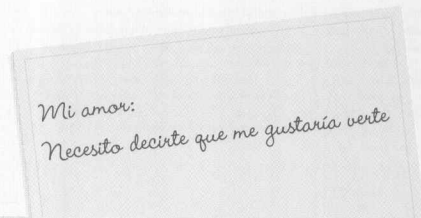 Mi amor:
Necesito decirte que me gustaría verte